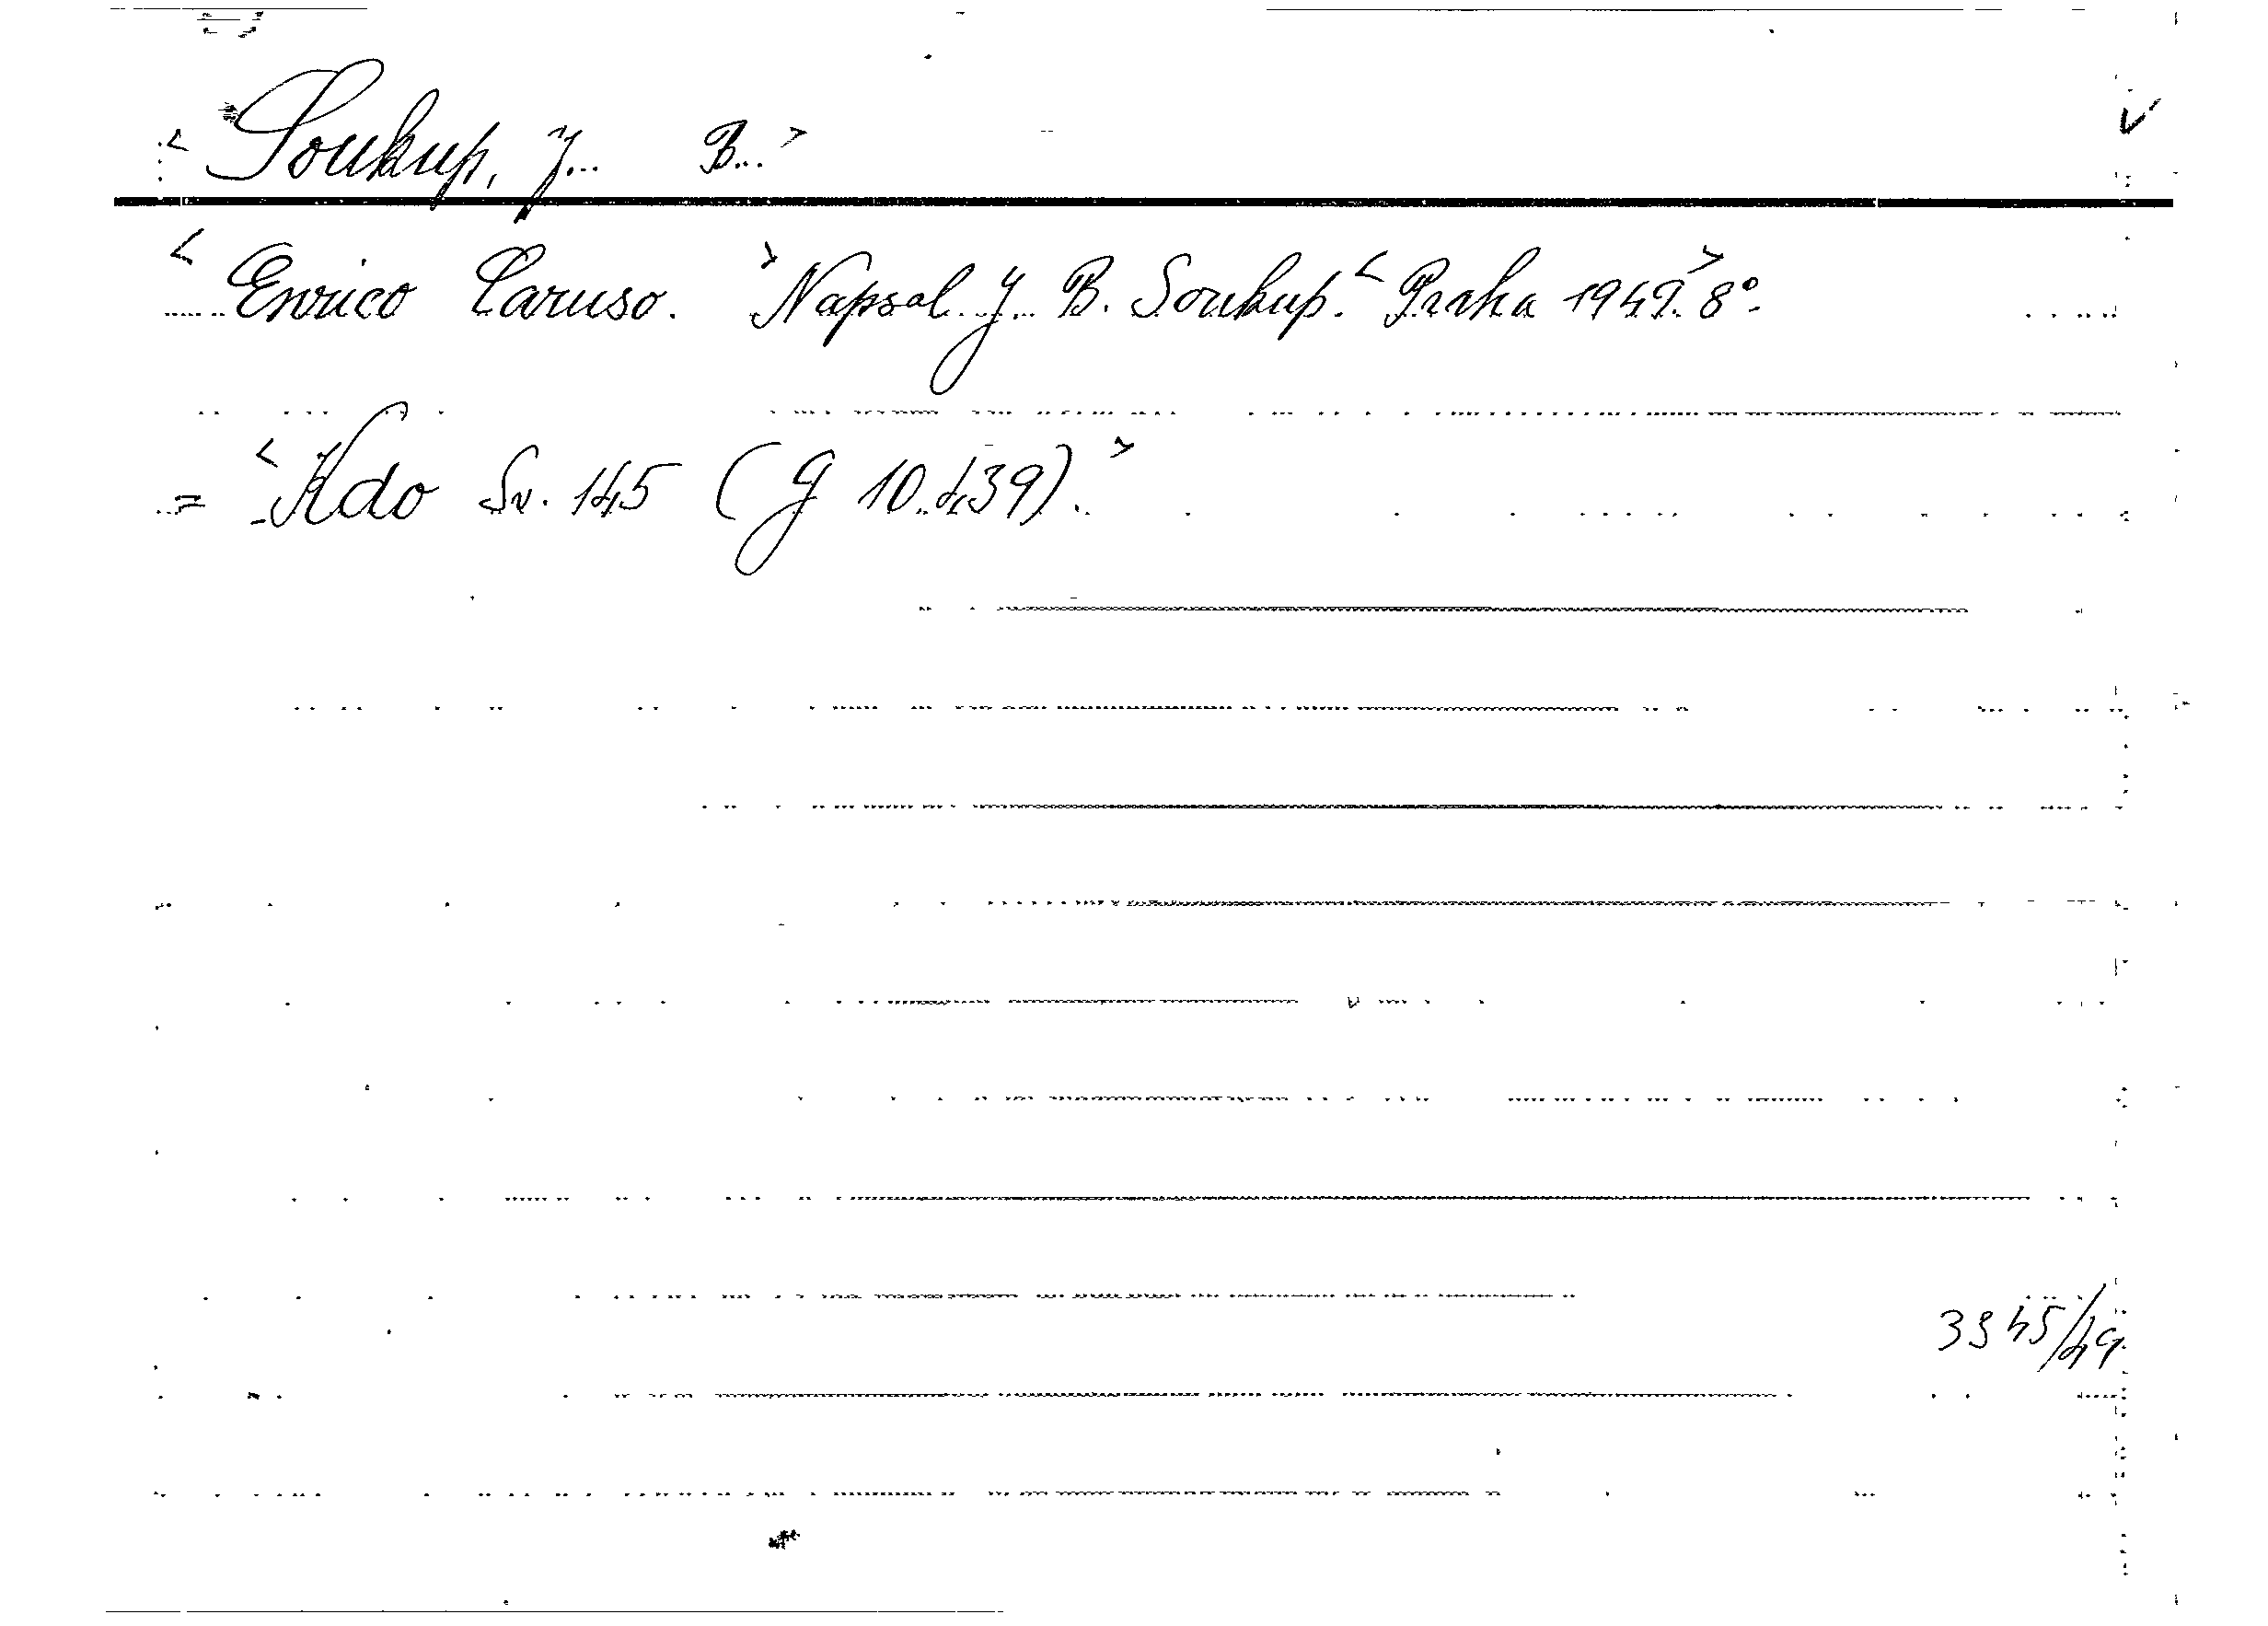 < Soukup, J... B... > √
< Enrico Caruso. > Napsal J. B. Soukup. < Praha 1949. > 8°.
= < Kdo Sv. 145 (G 10.439). >
3345/49